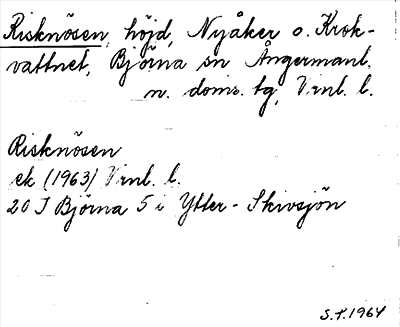 Risknösen, höjd, Nyåker o. Krok-
vattnet, Björna sn Ångermanl.
n. doms. tg, V:rnl. l.
Risknösen
ek (1963) V:rnl. l.
20 I Björna 5 i Ytter-Skivsjön
S.T. 1964